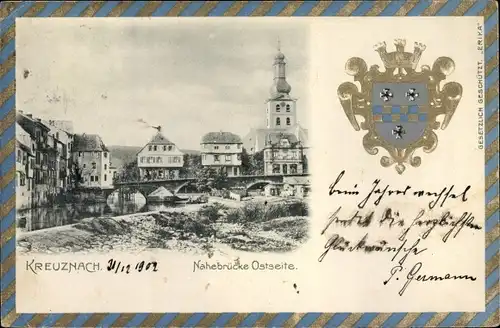 GESETZLICH GESCHÜTZT. „ERIKA"
beim Jahreswechsel
sendet die herzlichsten
Glückwünsche
P. Germann
KREUZNACH. 31/12 1902
Nahebrücke Ostseite.